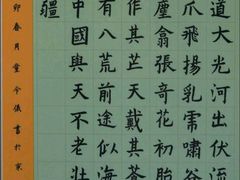 道大光河出伏流
爪飛揚乳虎嘯谷
塵翕張奇花初胎
作其芒天戴其蒼
有八荒前途似海
中國與天不老壯
疆
卯春月令儀書於京